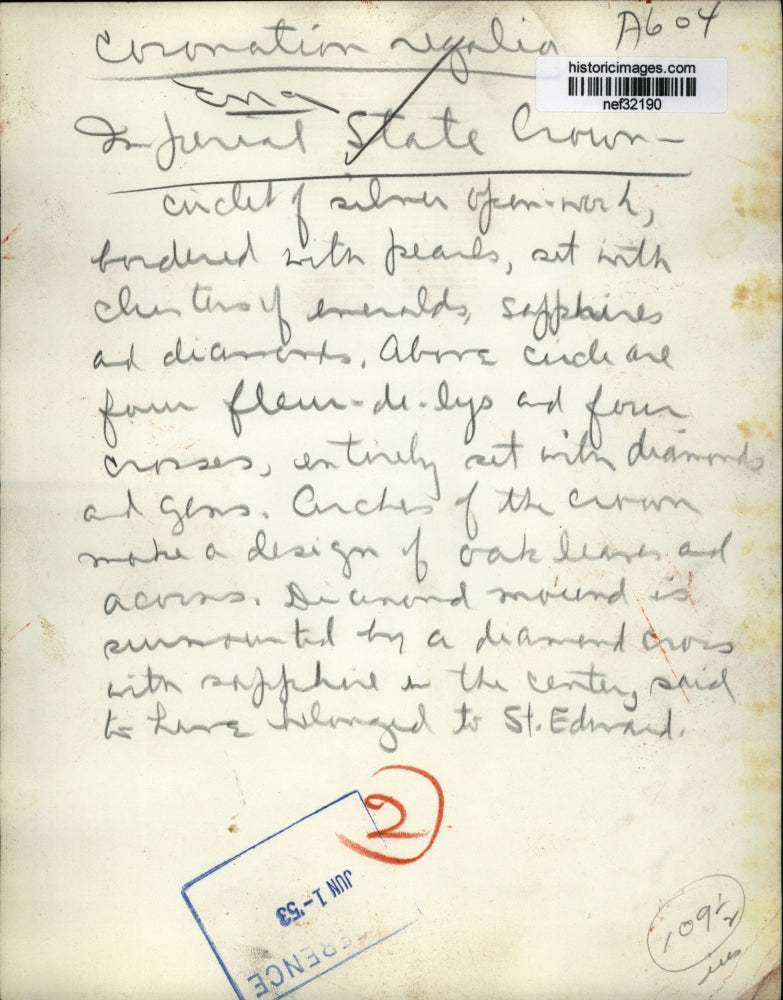 Coronation regalia A604
historicimages.com
nef32190
Eng
Imperial State Crown -
circlet of silver open-work,
bordered with pearls, set with
clusters of emeralds, sapphires
and diamonds. Above circle are
four fleur-de-lys and four
crosses, entirely set with diamonds
and gems. Arches of the crown
make a design of oak leaves and
acorns. Diamond mound is
surmounted by a diamond cross
with sapphire in the center, said
to have belonged to St. Edward.
2
JUN 1-'53
ERENCE
109½
ins